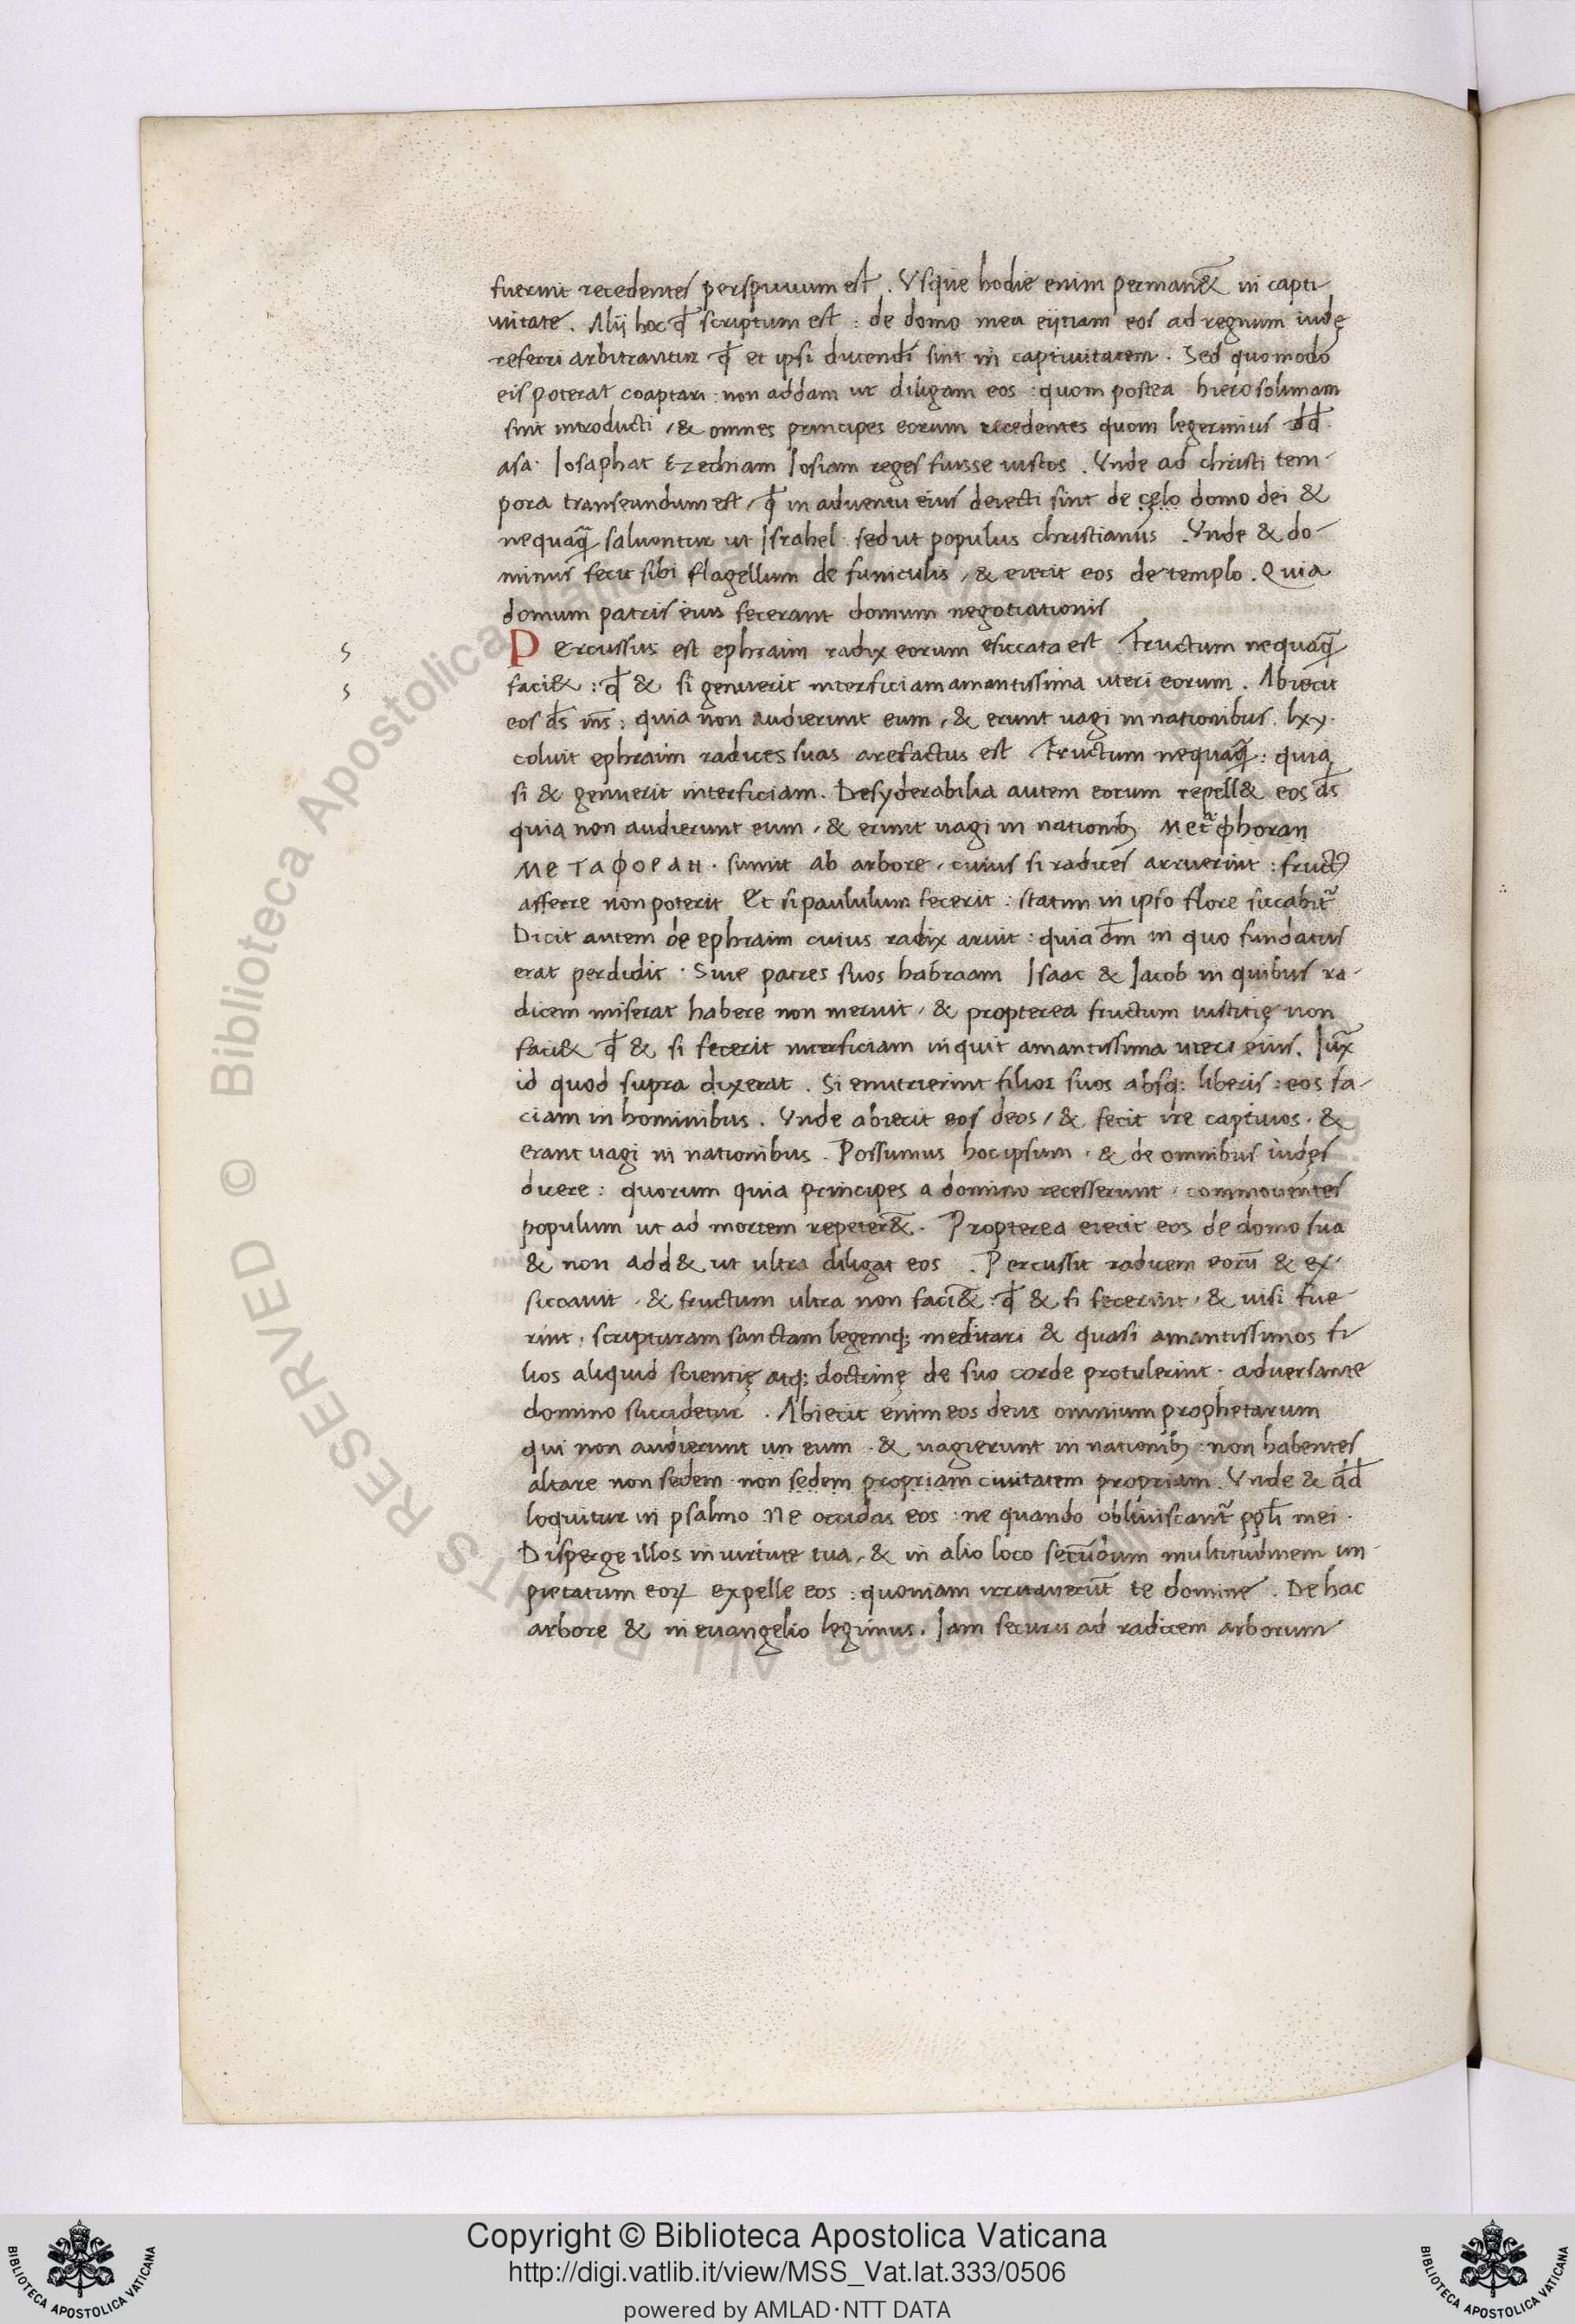 fuerint recedentes perspicuum est. Vsque hodie enim permanēt in capti
uitate. Alij hoc qđ scriptum est : de domo mea eijciam eos ad regnum iudę
referri arbitrantur qđ et ipsi ducendi sint in captiuitatem. Sed quomodo
eis poterat coaptari : non addam ut diligam eos : quom postea hierosolimam
sint introducti / & omnes principes eorum recedentes quom legerimus dd̄.
asa. Iosaphat Ezechiam Iosiam reges fuisse iustos. Vnde ad christi tem-
pora transeundum est / qđ in aduentu eius deiecti sint de cęlo domo dei &
nequaq̄ saluentur ut Israhel sed ut populus christianus. Vnde & do-
minus fecit sibi flagellum de funiculis / & eiecit eos de templo. Quia
domum patris eius fecerant domum negotiationis
Percussus est ephraim radix eorum esiccata est. Fructum nequaq̄
faci& : qđ & si genuerit interficiam amantissima uteri eorum. Abiecit
eos ds̄ ms̄ : quia non audierunt eum / & erunt uagi in nationibus. lxx.
coluit ephraim radices suas arefactus est Fructum nequaq̄ : quia
si & genuerit interficiam. Desyderabilia autem eorum repell& eos ds̄
quia non audierunt eum / & erunt uagi in nationibꝫ Metāphoran
ΜεΤαφοραη. sumit ab arbore. cuius si radices arruerint : fructꝰ
afferre non poterit Et si paululum fecerit : statim in ipso flore siccabit̄
Dicit autem de ephraim cuius radix aruit : quia dm̄ in quo fundatus
erat perdidit. Siue patres suos habraam Isaac & Iacob in quibus ra-
dicem miserat habere non meruit / & propterea fructum iustitię non
faci& qđ & si fecerit interficiam inquit amantissima uteri eius. Iux̄
id quod supra dixerat. Si enutrierint filios suos absq; liberis : eos fa-
ciam in hominibus. Vnde abiecit eos deos / & fecit ire captiuos. &
erant uagi in nationibus. Possumus hoc ipsum. & de omnibus iudęis
dicere : quorum quia principes a domino recesserunt / commouentes
populum ut ad mortem repeter&̄. Propterea eiecit eos de domo sua
& non add& ut ultra diligat eos. Percussit radicem eorū & ex-
siccauit. & fructum ultra non faci&̄ : qđ & si fecerint. & uisi fue-
rint. scripturam sanctam legemq; meditari & quasi amantissimos fi
lios aliquid scientię atq; doctrinę de suo corde protulerint. aduersante
domino succidetur. Abiecit enim eos deus omnium prophetarum
qui non audierunt un eum. & uagierunt in nationibꝫ : non habentes
altare non sedem non sedem propriam ciuitatem propriam. Vnde & dd̄
loquitur in psalmo Ne occidas eos : ne quando obliuiscant̄ ppl̄i mei.
Disperge illos in uirtute tua / & in alio loco secūdum multitudinem im-
pietatum eoꝝ expelle eos : quoniam irritauerūt te domine. De hac
arbore & in euangelio legimus. Iam securis ad radicem arborum
s
s
© Biblioteca Apostolica Vaticana
ALL RIGHTS RESERVED
Copyright © Biblioteca Apostolica Vaticana
http://digi.vatlib.it/view/MSS_Vat.lat.333/0506
powered by AMLAD·NTT DATA
BIBLIOTECA APOSTOLICA VATICANA
BIBLIOTECA APOSTOLICA VATICANA